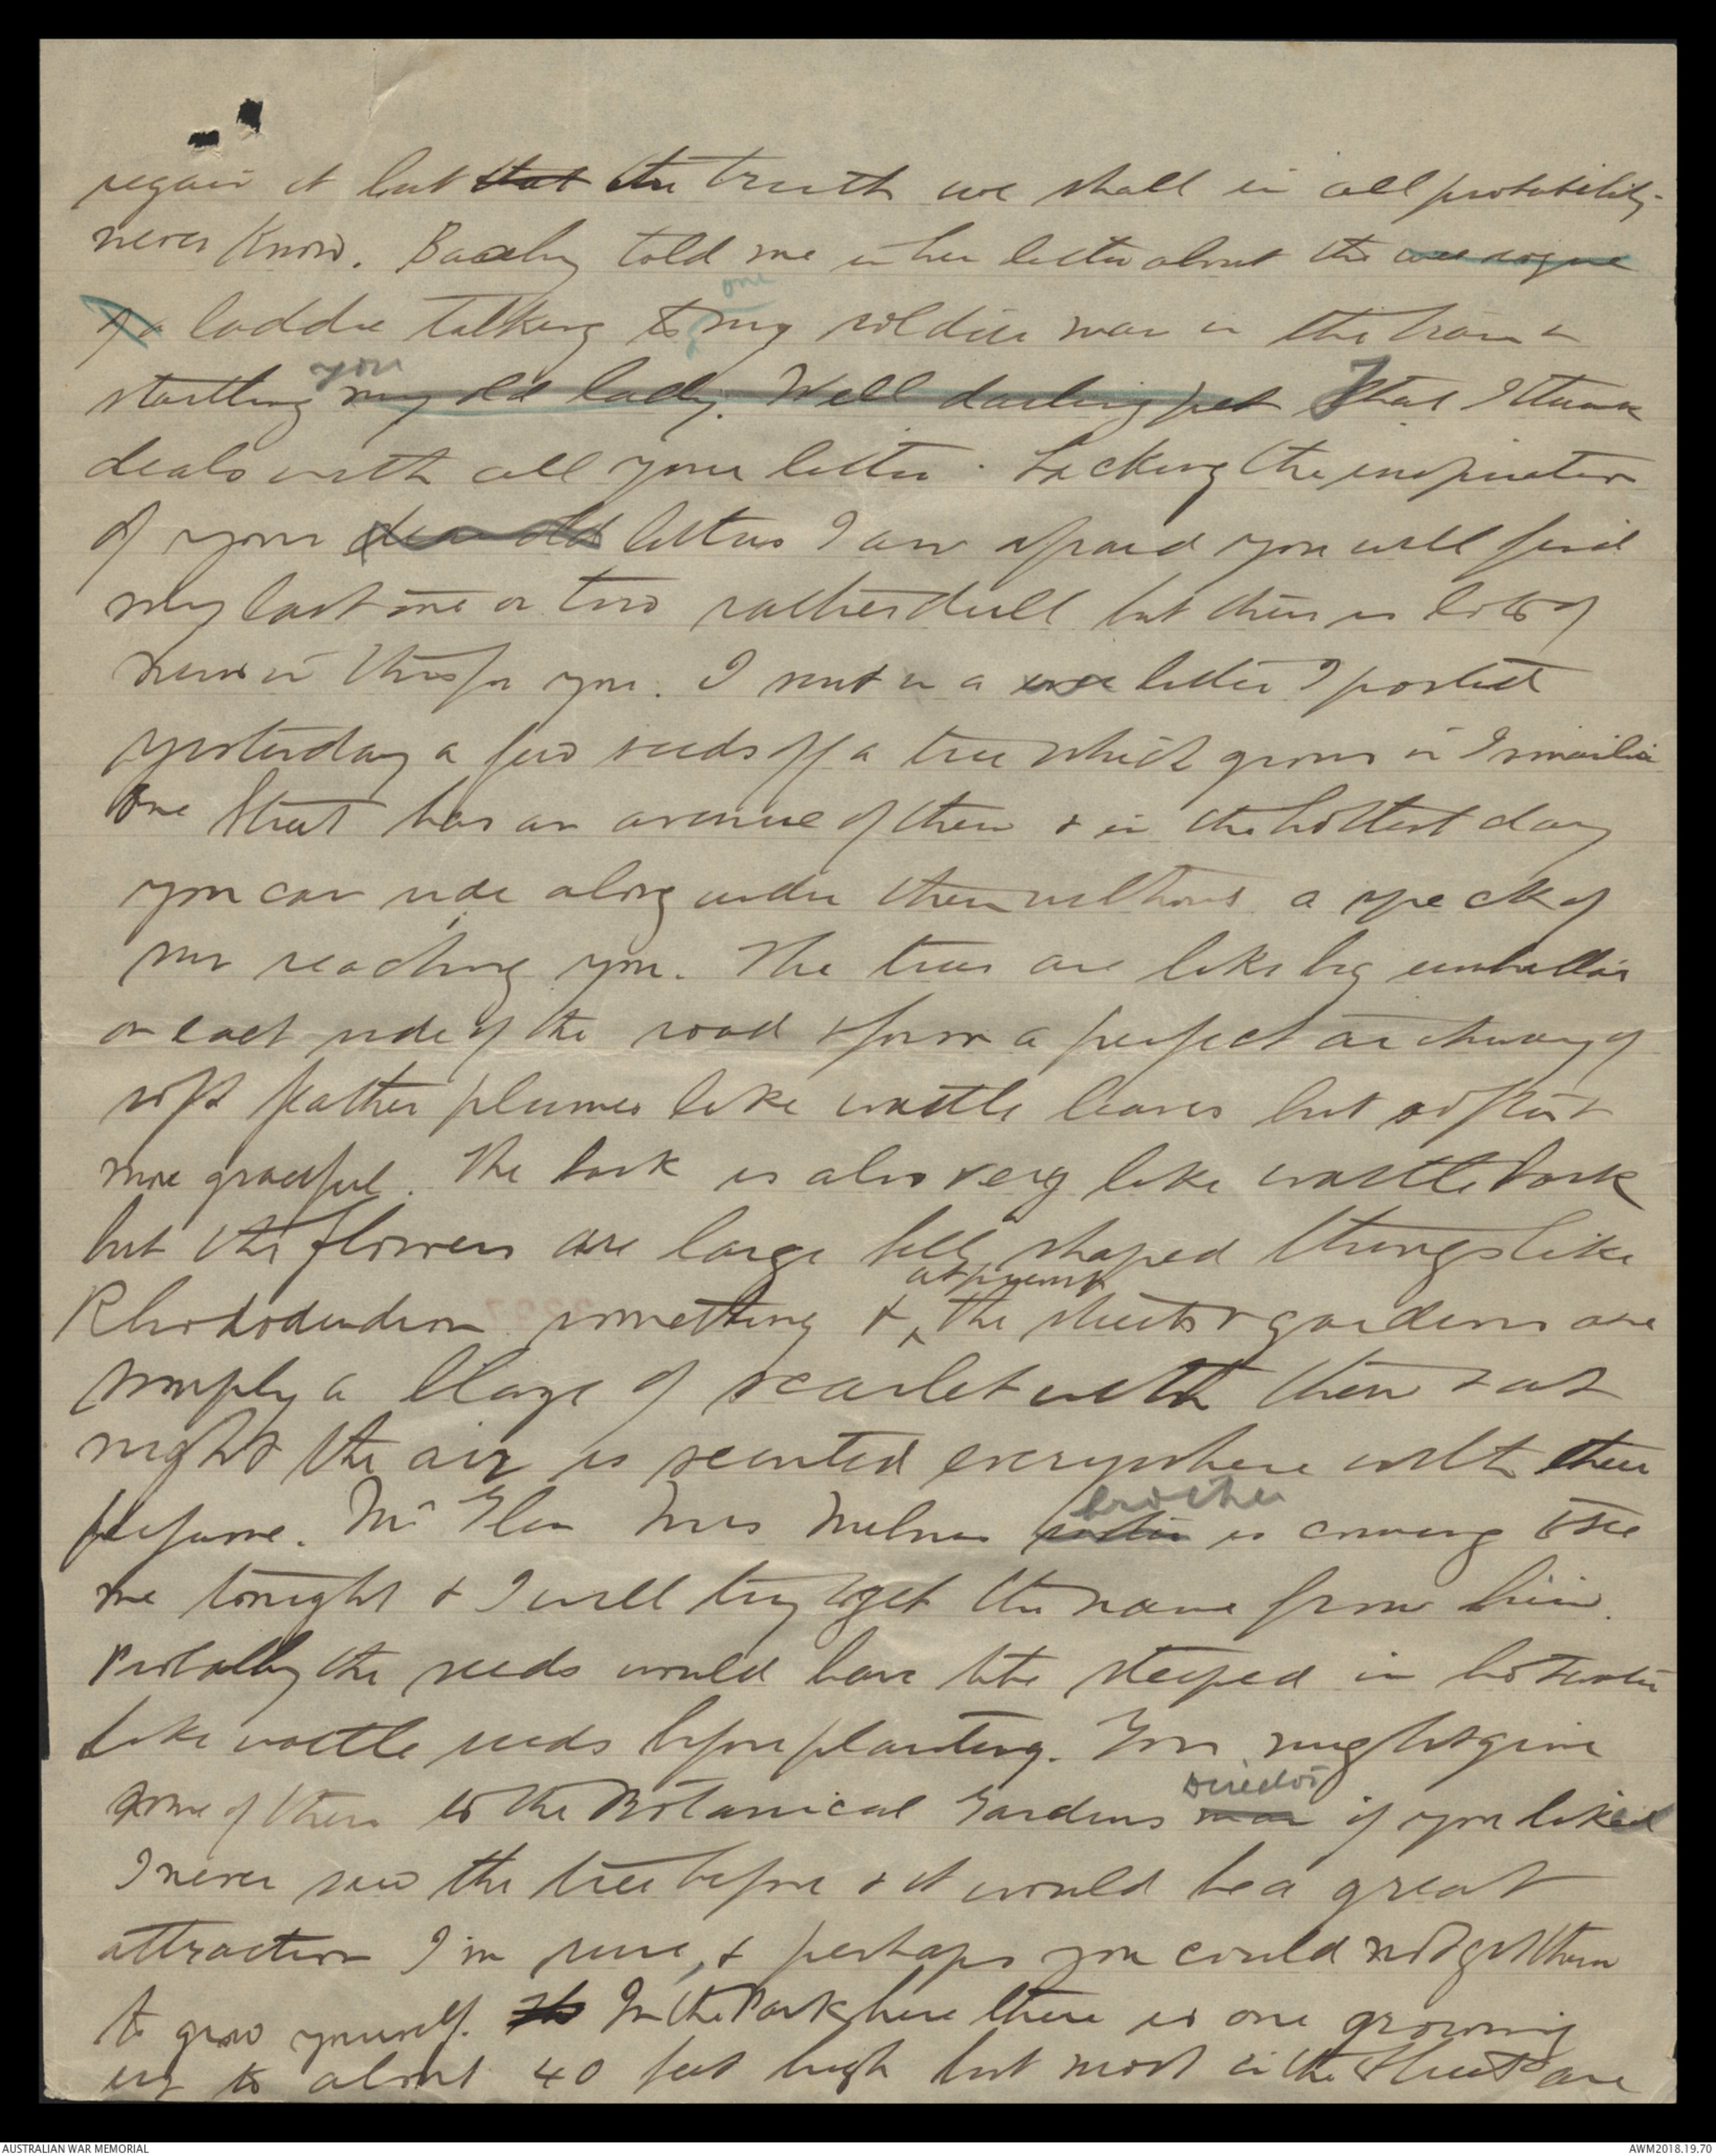 regain it but that the truth we shall in all probability
never know. Baaby told me in her letter about the wee rogue
of a laddie talking to one my soldier man in the train &
startling you my old lady. Well darling pet That I think
deals with all your letter. Lacking the inspiration
of your dear old letters I am afraid you will find
my last one or two rather dull but there is lots of
news in this for you. I sent in a wee letter I posted
yesterday a few seeds off a tree which grows in Ismailia
One Street has an avenue of them & in the hottest day
you can ride along under them without a speck of
sun reaching you. The trees are like big umbrellas
on each side of the road & form a perfect archway of
soft feather plumes like wattle leaves but softer &
more graceful. The bark is also very like wattle bark
but the flowers are large bell shaped things like
Rhododendron something & at present the streets & gardens are
simply a blaze of scarlet with them & at
night the air is scented everywhere with their
perfume. Mr Mrs brother is coming to see
me tonight & I will try to get the name from him.
Probably the seeds would have to be steeped in hot water
like wattle seeds before planting. You might give
some of them to the Botanical Gardens man Director if you liked
I never saw the tree before & it would be a great
attraction I'm sure, & perhaps you could not get them
to grow yourself. In the Park here there is one growing
up to about 40 feet high but most in the Street are
AUSTRALIAN WAR MEMORIAL
AWM2018.19.70